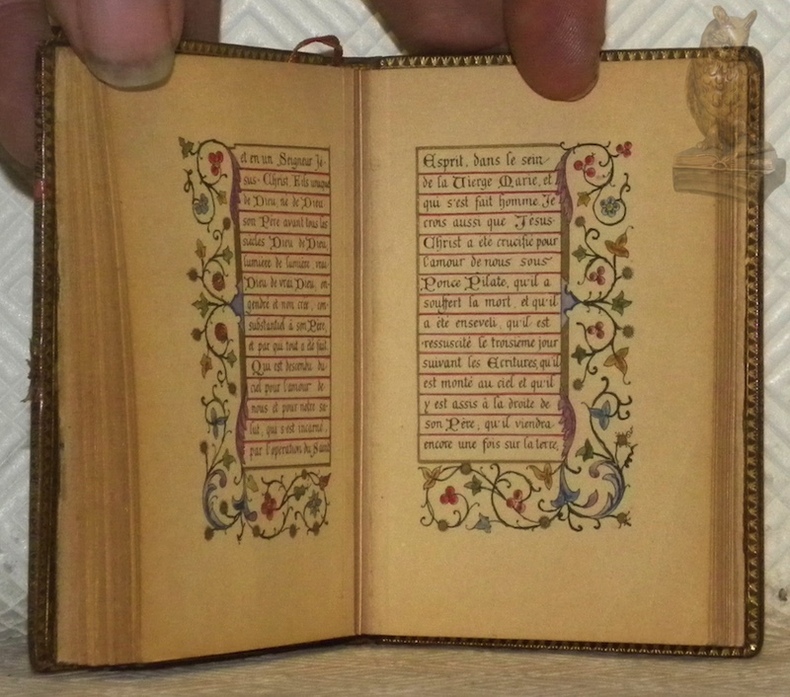 et en un Seigneur Jé-
sus-Christ Fils unique
de Dieu, né de Dieu
son Père avant tous les
siècles Dieu de Dieu,
lumière de lumière, vrai
Dieu de vrai Dieu, en-
gendré et non créé, con-
substantiel à son Père,
et par qui tout a été fait.
Qui est descendu du
ciel pour l'amour de
nous et pour notre sa-
lut, qui s'est incarné,
par l'opération du Saint
Esprit, dans le sein
de la Vierge Marie, et
qui s'est fait homme Je
crois aussi que Jésus-
Christ a été crucifié pour
l'amour de nous sous
Ponce Pilate, qu'il a
souffert la mort, et qu'il
a été enseveli, qu'il est
ressuscité le troisième jour
suivant les Ecritures, qu'il
est monté au ciel et qu'il
y est assis à la droite de
son Père, qu'il viendra
encore une fois sur la terre,